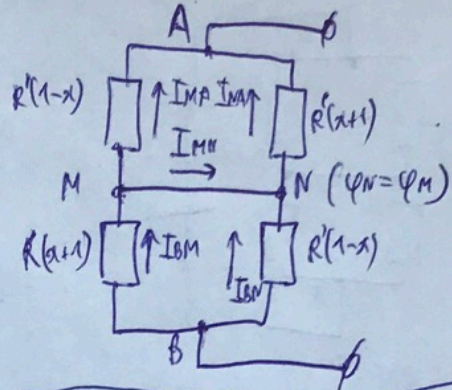 A
R'(1-x) I_MA I_NA R'(x+1)
I_MN
M N (φ_N=φ_M)
R'(x+1) I_BM I_BN R'(1-x)
B